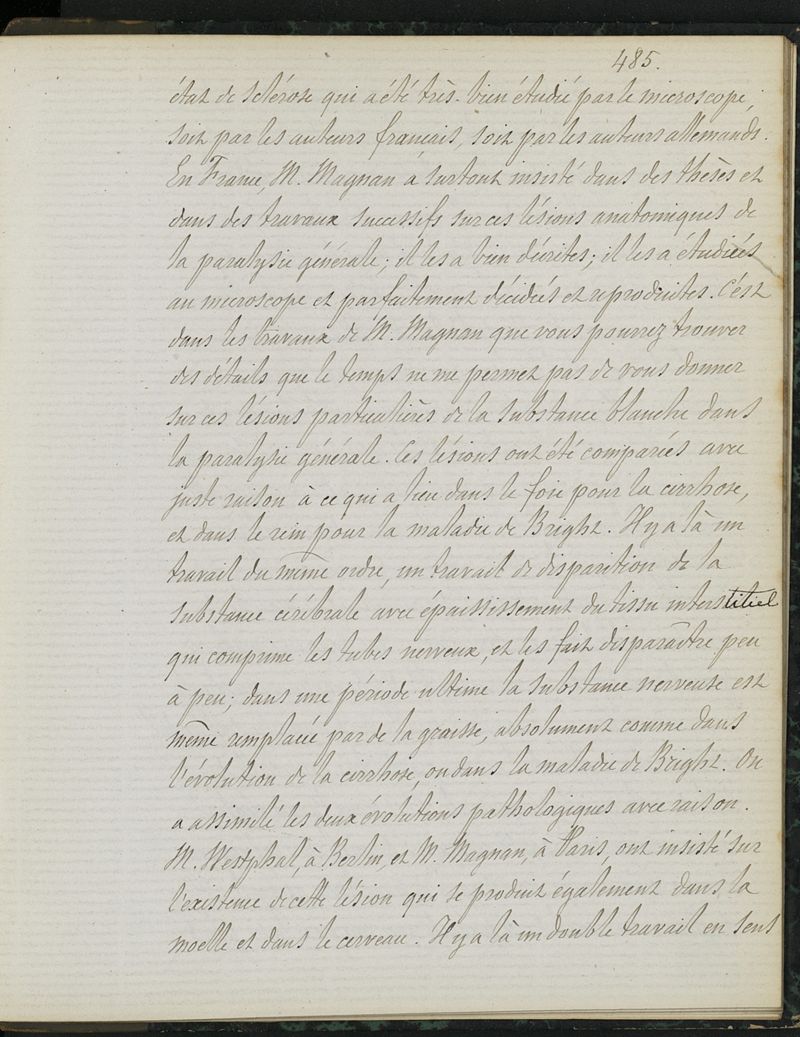 485.
état de sclérose qui a été très-bien étudié par le microscope,
soit par les auteurs français, soit par les auteurs allemands.
En France, M. Magnan a surtout insisté dans des thèses et
dans des travaux successifs sur ces lésions anatomiques de
la paralysie générale; il les a bien décrites; il les a étudiées
au microscope et parfaitement décidées et reproduites. C'est
dans les travaux de M. Magnan que vous pourrez trouver
des détails que le temps ne me permet pas de vous donner
sur ces lésions particulières de la substance blanche dans
la paralysie générale. Ces lésions ont été comparées avec
juste raison à ce qui a lieu dans le foie pour la cirrhose,
et dans le rein pour la maladie de Bright. Il y a là un
travail du même ordre, un travail de disparition de la
substance cérébrale avec épaississement du tissu interstitiel
qui comprime les tubes nerveux, et les fait disparaître peu
à peu; dans une période ultime la substance nerveuse est
même remplacée par de la graisse, absolument comme dans
l'évolution de la cirrhose, ou dans la maladie de Bright. On
a assimilé les deux évolutions pathologiques avec raison.
M. Westphal, à Berlin, et M. Magnan, à Paris, ont insisté sur
l'existence de cette lésion qui se produit également dans la
moelle et dans le cerveau. Il y a là un double travail en sens